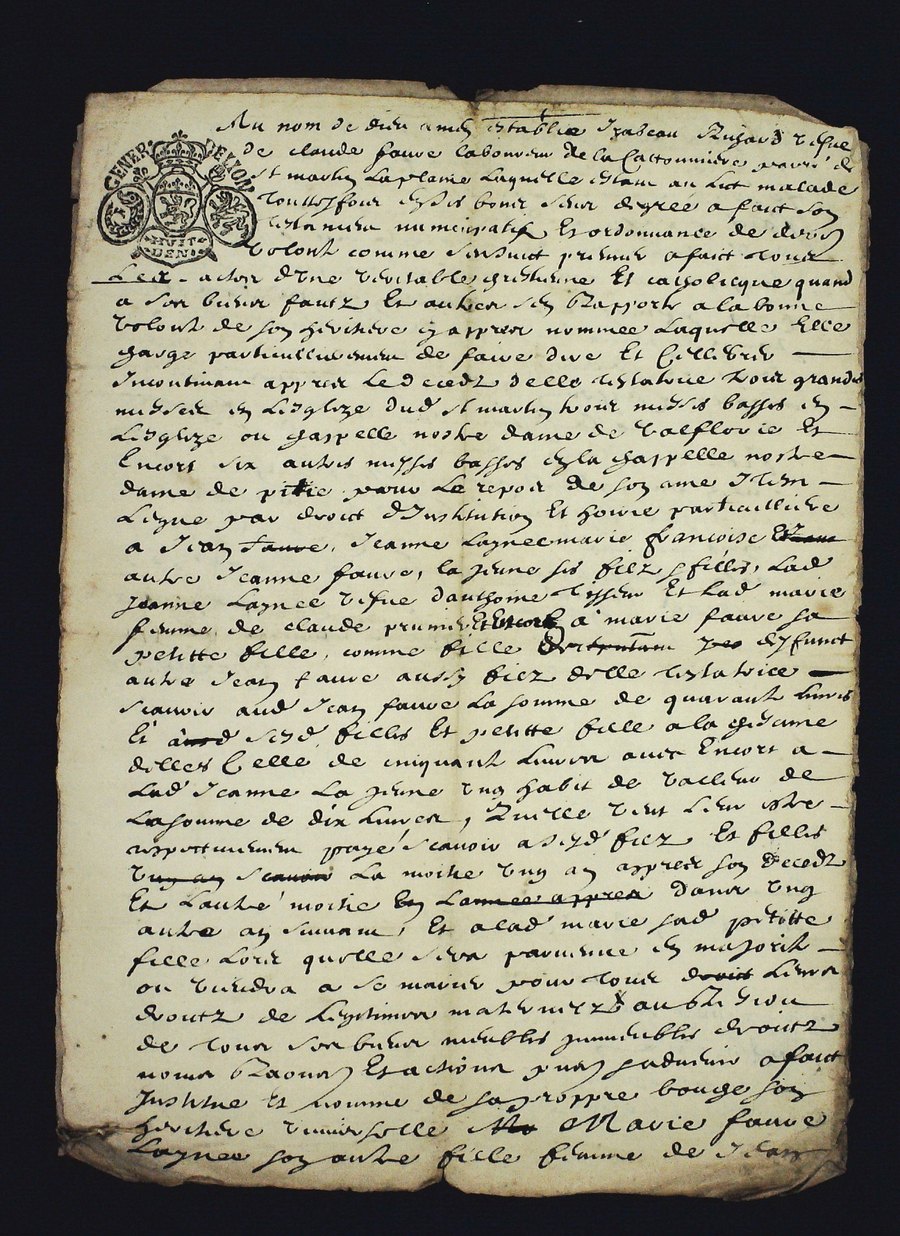 GENER. DE LYON
HUIT DEN
Au nom de dieu amen establie Izabeau vefve
de claude faure laboureur de la parr. de
st martin La plaine Laquelle estant au lict malade
Touttesfois en ses bons sens de gree a faict son
testament nuncupatif Et ordonnance de derniere
volonté comme sensuict premier a faict tous
Les actes d'Une veritable chrestienne Et catholicque quand
a ses biens faictz Et autres sen Rapporte a la bonne
volonté de son heritiere cy appres nommee Laquelle Elle
charge particullierement de faire dire Et Cellebrer
Incontinant appres Le deceds delle testatrice trois grandes
messes en Lesglize dud st martin trois messes basses en
Lesglize ou chappelle nostre dame de valflorie Et
Encore six autres messes basses en la chappelle nostre
dame de pitie pour Le repos de son ame Item
Legue par droict d'Institution Et hoirie particulliere
a Jean faure, Jeanne Laynee marie francoise
autre Jeanne faure, la jeune ses filz & filles, Lad
Jeanne Laynee vefve danthoine Tisseur Et Lad marie
femme de claude prunier Et Encore a marie faure sa
petitte fille, comme fille deffunct
autre Jean faure aussy filz delle testatrice
scavoir aud Jean faure La somme de quarante Livres
Et a sesd filles Et petitte fille a la chescune
delles Celle de cinquante Livres avec Encore a
Lad Jeanne La jeune ung habit de valleur de
La somme de dix Livres, Quelle veut Leur estre
respectivement payé scavoir a sesd filz Et filles
ung an scavoir La moitie ung an appres son deceds
Et Lautre moitie En Lannee appres dans ung
autre an suivant, Et a lad marie sad petitte
fille Lors quelle sera parvenue en majorite
ou viendra a se marier pour tous droict Leurs
droictz de Legitimes maternelz au Residu
de tous ses biens meubles immeubles droictz
noms Raisons Et actions puis a faict
Institue Et nomme de sa proppre bouche son
heritiere universelle Marie faure
Laynee son autre fille femme de Jean